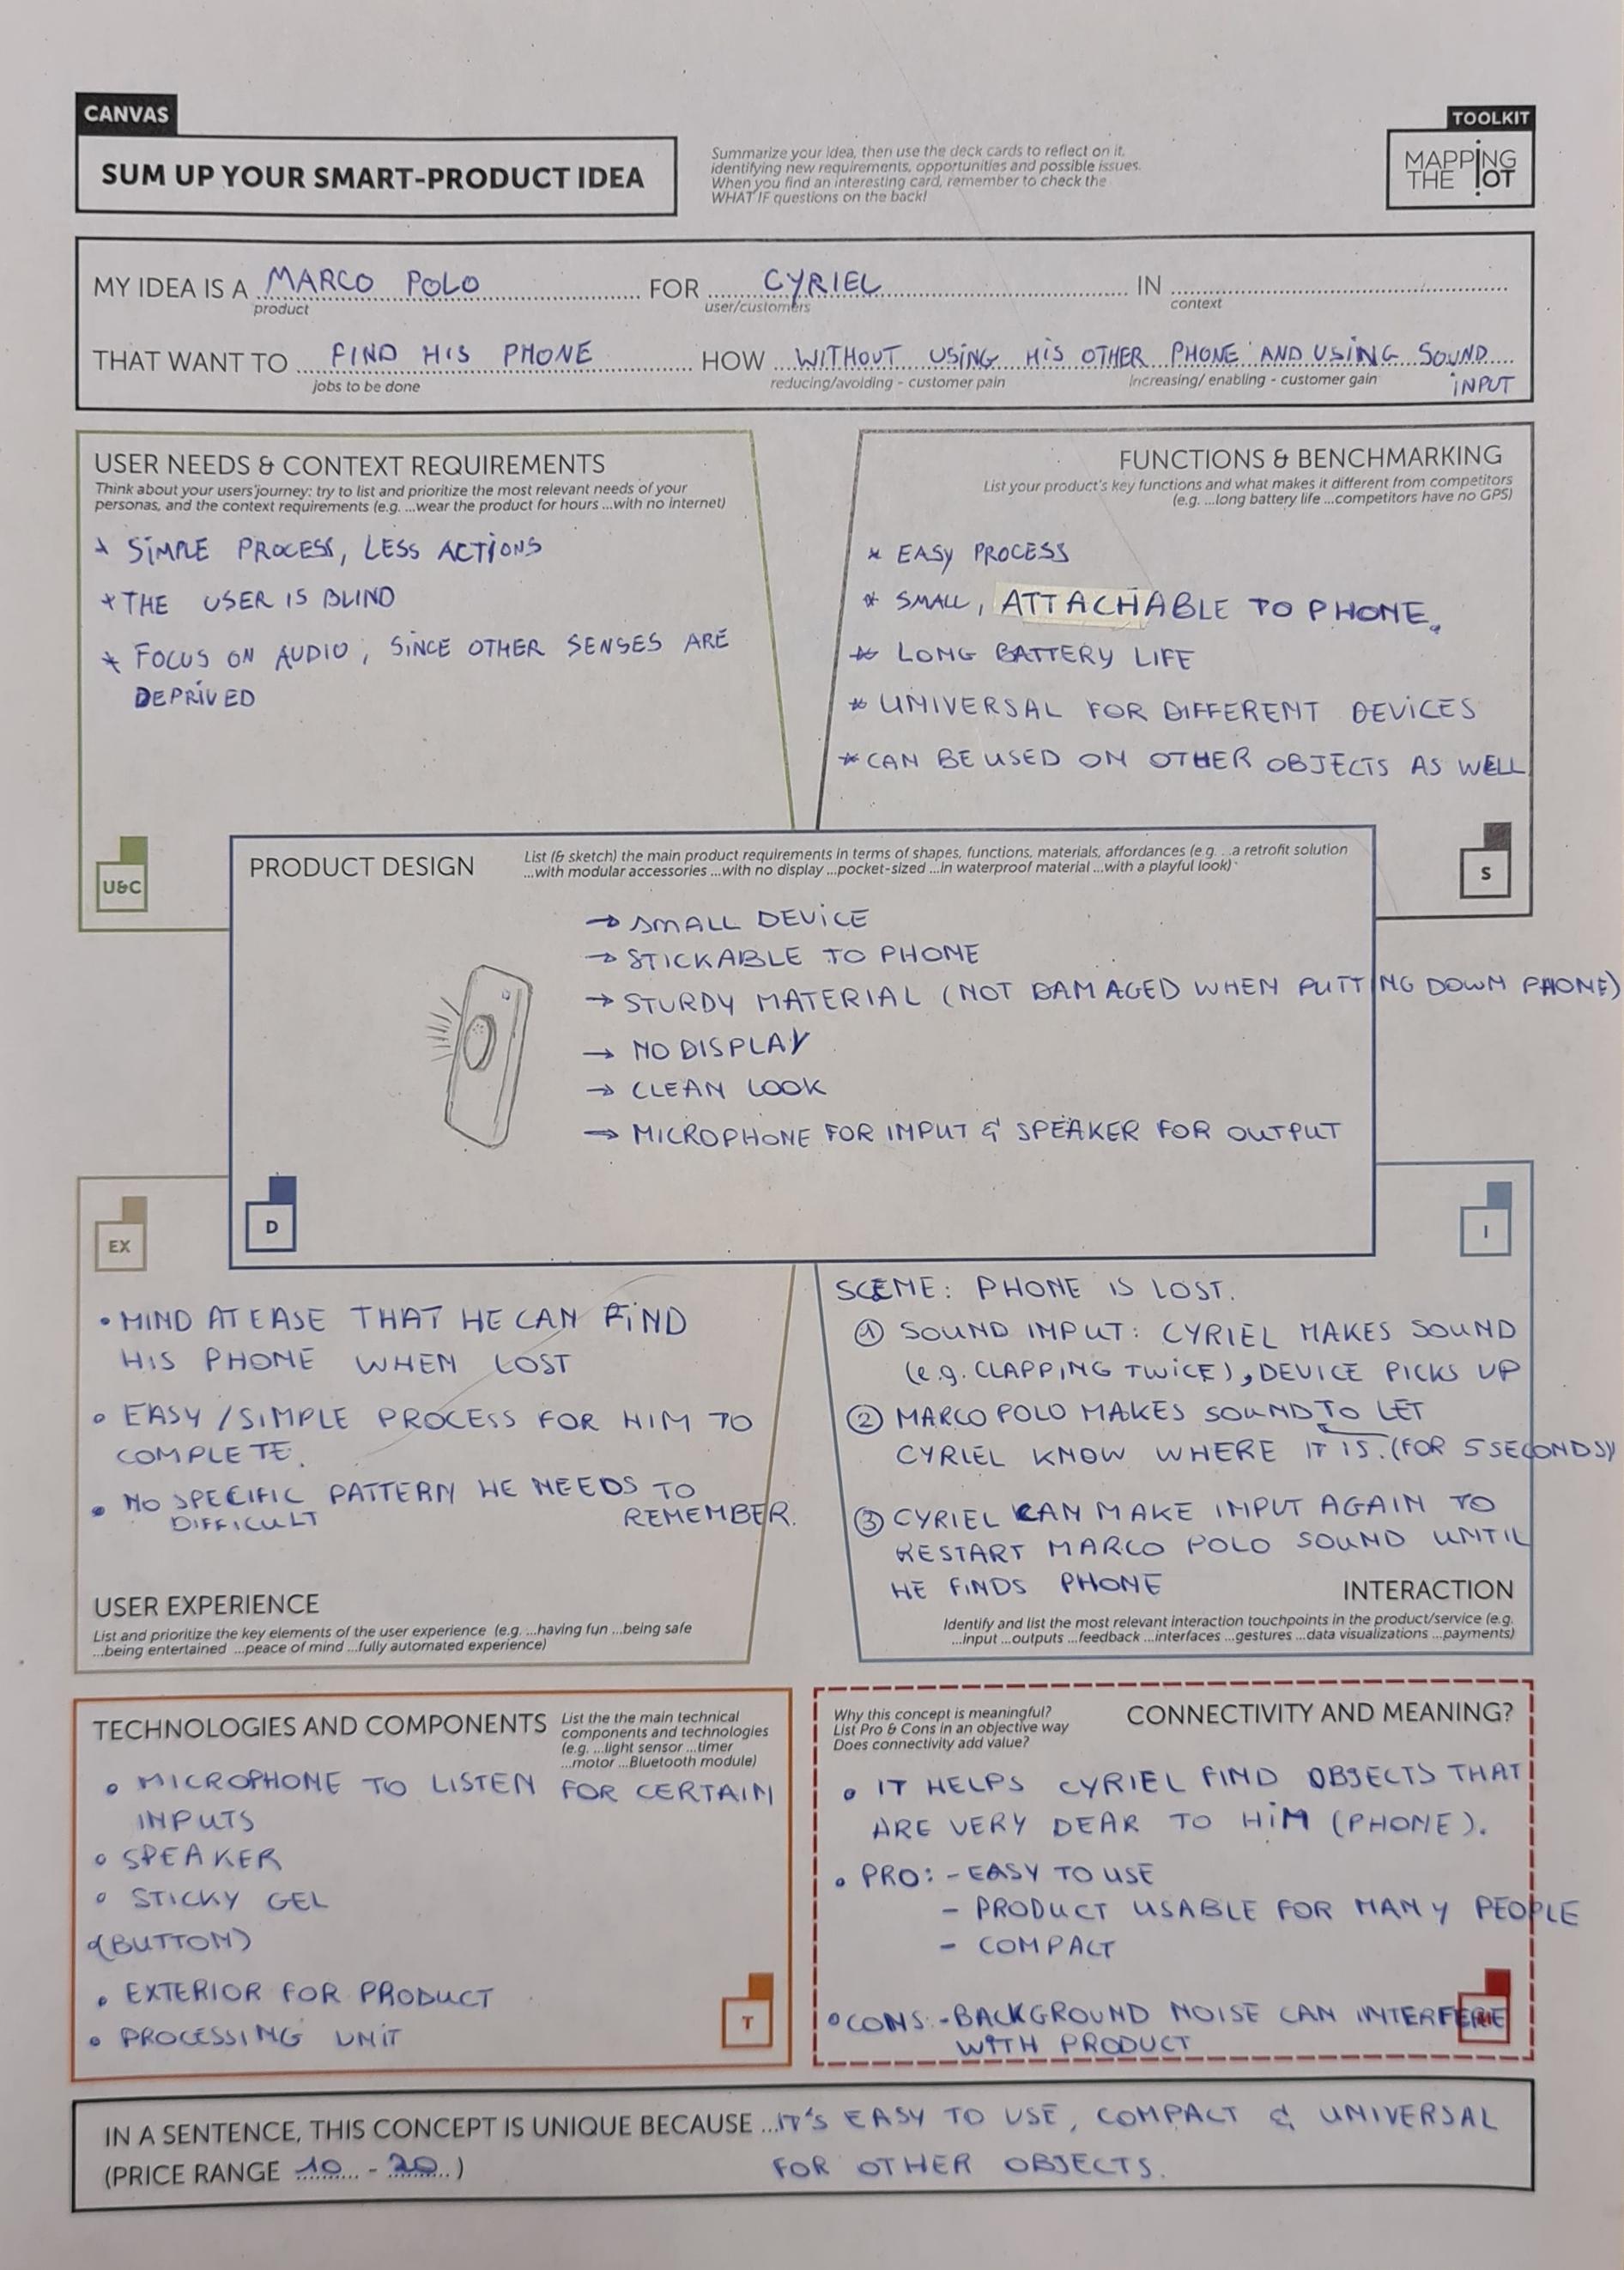 CANVAS
SUM UP YOUR SMART-PRODUCT IDEA
Summarize your idea, then use the deck cards to reflect on it,
identifying new requirements, opportunities and possible issues.
When you find an interesting card, remember to check the
WHAT IF questions on the back!
TOOLKIT
MAPPING
THE IOT
MY IDEA IS A MARCO POLO FOR CYRIEL IN
product user/customers context
THAT WANT TO FIND HIS PHONE HOW WITHOUT USING HIS OTHER PHONE AND USING SOUND
INPUT
jobs to be done reducing/avoiding - customer pain increasing/ enabling - customer gain
USER NEEDS & CONTEXT REQUIREMENTS
Think about your users'journey: try to list and prioritize the most relevant needs of your
personas, and the context requirements (e.g. ...wear the product for hours ...with no internet)
* SIMPLE PROCESS, LESS ACTIONS
* THE USER IS BLIND
* FOCUS ON AUDIO, SINCE OTHER SENSES ARE
DEPRIVED
U&C
FUNCTIONS & BENCHMARKING
List your product's key functions and what makes it different from competitors
(e.g. ...long battery life ...competitors have no GPS)
* EASY PROCESS
* SMALL, ATTACHABLE TO PHONE.
* LONG BATTERY LIFE
* UNIVERSAL FOR DIFFERENT DEVICES
* CAN BE USED ON OTHER OBJECTS AS WELL
S
PRODUCT DESIGN
List (& sketch) the main product requirements in terms of shapes, functions, materials, affordances (e.g. ...a retrofit solution
...with modular accessories ...with no display ...pocket-sized ...in waterproof material ...with a playful look)
→ SMALL DEVICE
→ STICKABLE TO PHONE
→ STURDY MATERIAL (NOT DAMAGED WHEN PUTTING DOWN PHONE)
→ NO DISPLAY
→ CLEAN LOOK
→ MICROPHONE FOR INPUT & SPEAKER FOR OUTPUT
D
EX
• MIND AT EASE THAT HE CAN FIND
HIS PHONE WHEN LOST
• EASY /SIMPLE PROCESS FOR HIM TO
COMPLETE.
• NO SPECIFIC PATTERN HE NEEDS TO
DIFFICULT REMEMBER.
USER EXPERIENCE
List and prioritize the key elements of the user experience (e.g. ...having fun ...being safe
...being entertained ...peace of mind ...fully automated experience)
I
SCENE: PHONE IS LOST.
① SOUND INPUT: CYRIEL MAKES SOUND
(e.g. CLAPPING TWICE), DEVICE PICKS UP
② MARCO POLO MAKES SOUND TO LET
CYRIEL KNOW WHERE IT IS. (FOR 5 SECONDS)
③ CYRIEL CAN MAKE INPUT AGAIN TO
RESTART MARCO POLO SOUND UNTIL
HE FINDS PHONE
INTERACTION
Identify and list the most relevant interaction touchpoints in the product/service (e.g.
...input ...outputs ...feedback ...interfaces ...gestures ...data visualizations ...payments)
TECHNOLOGIES AND COMPONENTS
List the the main technical
components and technologies
(e.g. ...light sensor ...timer
...motor ...Bluetooth module)
• MICROPHONE TO LISTEN FOR CERTAIN
INPUTS
• SPEAKER
• STICKY GEL
•(BUTTON)
• EXTERIOR FOR PRODUCT
• PROCESSING UNIT
T
Why this concept is meaningful?
List Pro & Cons in an objective way
Does connectivity add value?
CONNECTIVITY AND MEANING?
• IT HELPS CYRIEL FIND OBJECTS THAT
ARE VERY DEAR TO HIM (PHONE).
• PRO: - EASY TO USE
- PRODUCT USABLE FOR MANY PEOPLE
- COMPACT
• CONS: - BACKGROUND NOISE CAN INTERFERE
WITH PRODUCT
IN A SENTENCE, THIS CONCEPT IS UNIQUE BECAUSE ...IT'S EASY TO USE, COMPACT & UNIVERSAL
(PRICE RANGE 10 - 20) FOR OTHER OBJECTS.